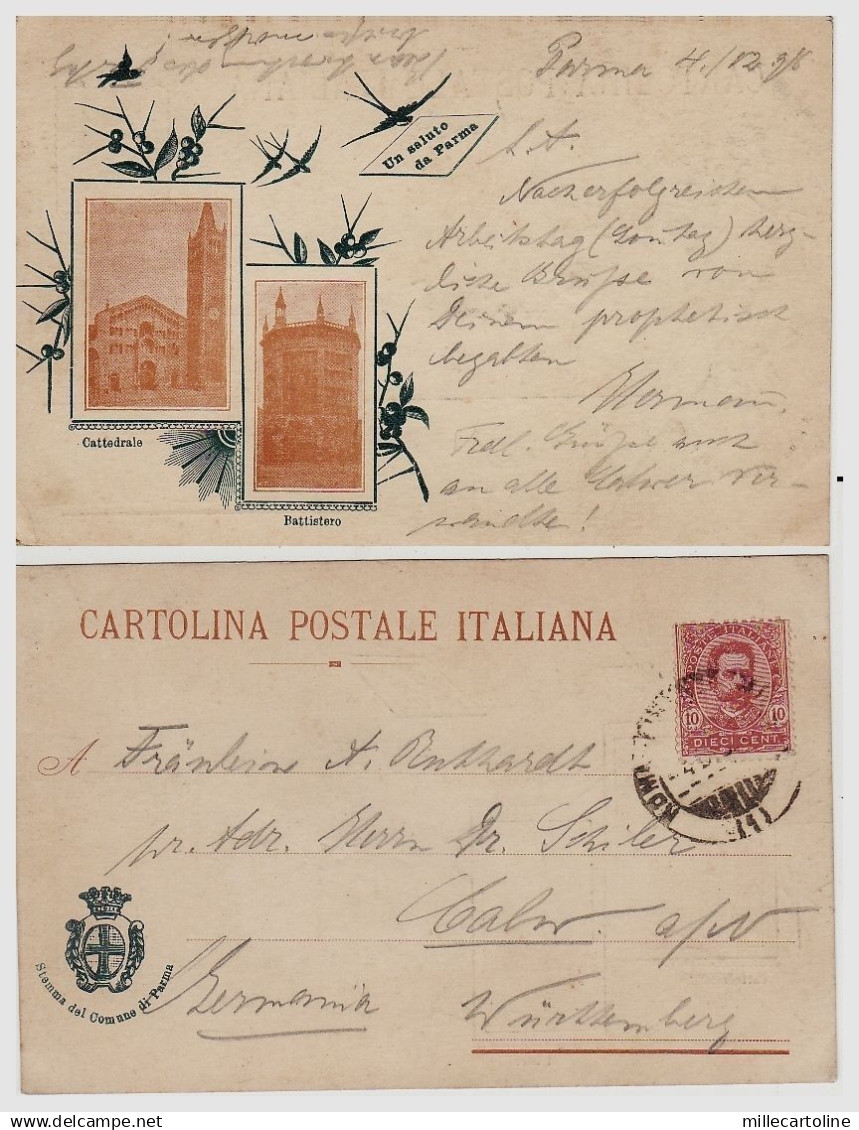 Parma 4./12. 98
Un saluto
da Parma
L. A.
Nach erfolgreichem
Arbeitstag (Sonntag) herz-
liche Grüße von
Deinem prophetisch
begabten
Hermann.
Frdl. Grüße auch
an alle Calwer Ver-
wandte!
Cattedrale
Battistero
CARTOLINA POSTALE ITALIANA
POSTE ITALIANE
10 10
DIECI CENT.
A Fräulein A.
pr. Adr. Herrn Dr. Schiler
Calw.
Germania
Württemberg
Stemma del Comune di Parma
delcampe.net
millecartoline